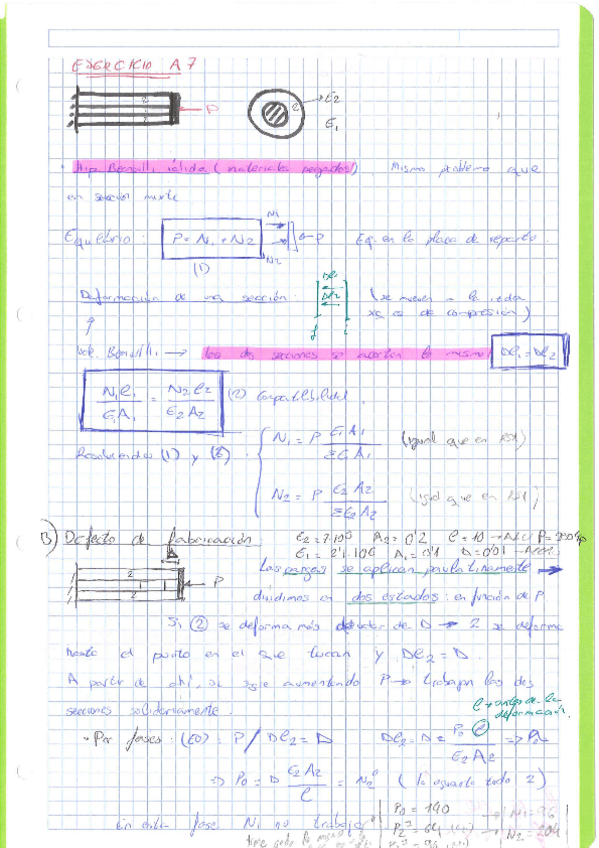 EJERCICIO A7
2
P
E2
E1
2
· Hip. Bernoulli válida (materiales pegados). Mismo problema que
en sección mixta
Equilibrio: P = N1 + N2 N1 N2 P Eq. en la placa de reparto.
(1)
Deformación de una sección: Dl1 Dl2 (se mueven a la izda
xq es de compresión)
Bernoulli → las dos secciones se acortan lo mismo! Dl1 = Dl2
N1l1/E1A1 = N2l2/E2A2 (2) Compatibilidad.
Resolviendo (1) y (2). N1 = P E1A1/ΣEiAi (igual que en
N2 = P E2A2/ΣE2A2 (igual que en
B) Defecto de fabricación: E2 = 7·106 A2 = 0'2 l = 10 P = 200
E1 = 2'1·106 A1 = 0'1 D = 0'01
2
1
2
P
Las cargas se aplican paulatinamente →
dividimos en dos estados: en función de P.
Si ② se deforma más de D → 2 se deforma
hasta el punto en el que tocan y Dl2 = D.
A partir de ahí, si sigue aumentando P → trabajan las dos
secciones solidariamente.
l → antes de la
deformación.
· Por fases: (E0): P / Dl2 = D Dl2 = D = P0 l/E2A2 ⇒ P0
⇒ P0 = D E2A2/l = N2⁰ (lo aguanta todo 2)
En esta fase N1 no trabaja
P0 = 140
N1 = 96
N2 = 204